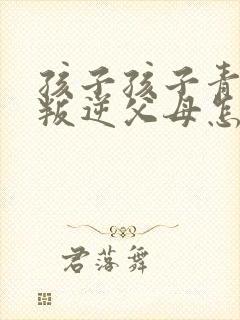 孩子孩子青
叛逆父母怎
君落舞